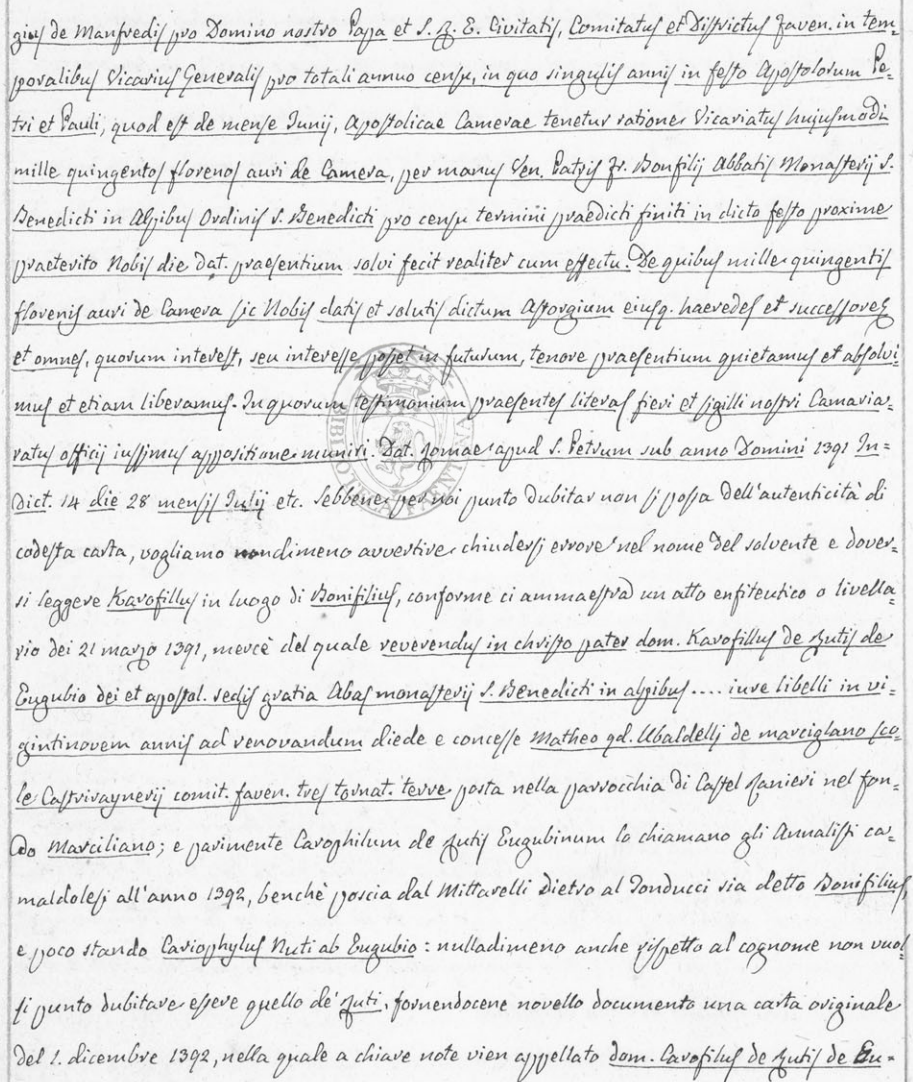 gius de Manfredis pro Domino nostro Papa et S. R. E. Civitatis, Comitatus et Districtus Faven. in tem=
poralibus Vicarius Generalis pro totali annuo censu, in quo singulis annis in festo Apostolorum Pe=
tri et Pauli, quod est de mense Junij, Apostolicae Camerae tenetur ratione Vicariatus hujusmodi
mille quingentos florenos auri de Camera, per manus Ven. Patris Fr. Bonfilij Abbatis Monasterij S.
Benedicti in Alpibus Ordinis S. Benedicti pro censu termini praedicti finiti in dicto festo proxime
praeterito Nobis die dat. praesentium solvi fecit realiter cum effectu. De quibus mille quingentis
florenis auri de Camera sic Nobis datis et solutis dictum Astorgium eiusq. haeredes et successores
et omnes, quorum interest, seu interesse posset in futurum, tenore praesentium quietamus et absolvi=
mus et etiam liberamus. In quorum testimonium praesentes literas fieri et sigilli nostri Camaria=
ratus officij iussimus appositione muniri. Dat. Romae apud S. Petrum sub anno Domini 1391 In=
dict. 14 die 28 mensis Julij etc. Sebbene per noi punto dubitar non si possa dell'autenticità di
codesta carta, vogliamo nondimeno avvertire chiudersi errore nel nome del solvente e dover=
si leggere Karofillus in luogo di Bonifilius, conforme ci ammaestra un atto enfiteutico o livella=
rio dei 21 marzo 1391, mercè del quale reverendus in christo pater dom. Karofillus de Rutis de
Eugubio dei et apostol. sedis gratia Abas monasterij S. Benedicti in alpibus .... iure libelli in vi=
gintinovem annis ad renovandum diede e concesse Matheo qd. Ubaldelli de marciglano sco=
le Castriraynerij comit. faven. tres tornat. terre posta nella parrocchia di Castel Ranieri nel fon=
do Marciliano; e parimente Carophilum de Rutis Eugubinum lo chiamano gli Annalisti ca=
maldolesi all'anno 1392, benchè poscia dal Mittarelli dietro al Tonducci sia detto Bonifilius,
e poco stando Cariophylus Nuti ab Eugubio: nulladimeno anche rispetto al cognome non vuol
si punto dubitare essere quello de' Ruti, fornendocene novello documento una carta originale
del 1. dicembre 1392, nella quale a chiare note vien appellato dom. Carofilus de Rutis de Eu=